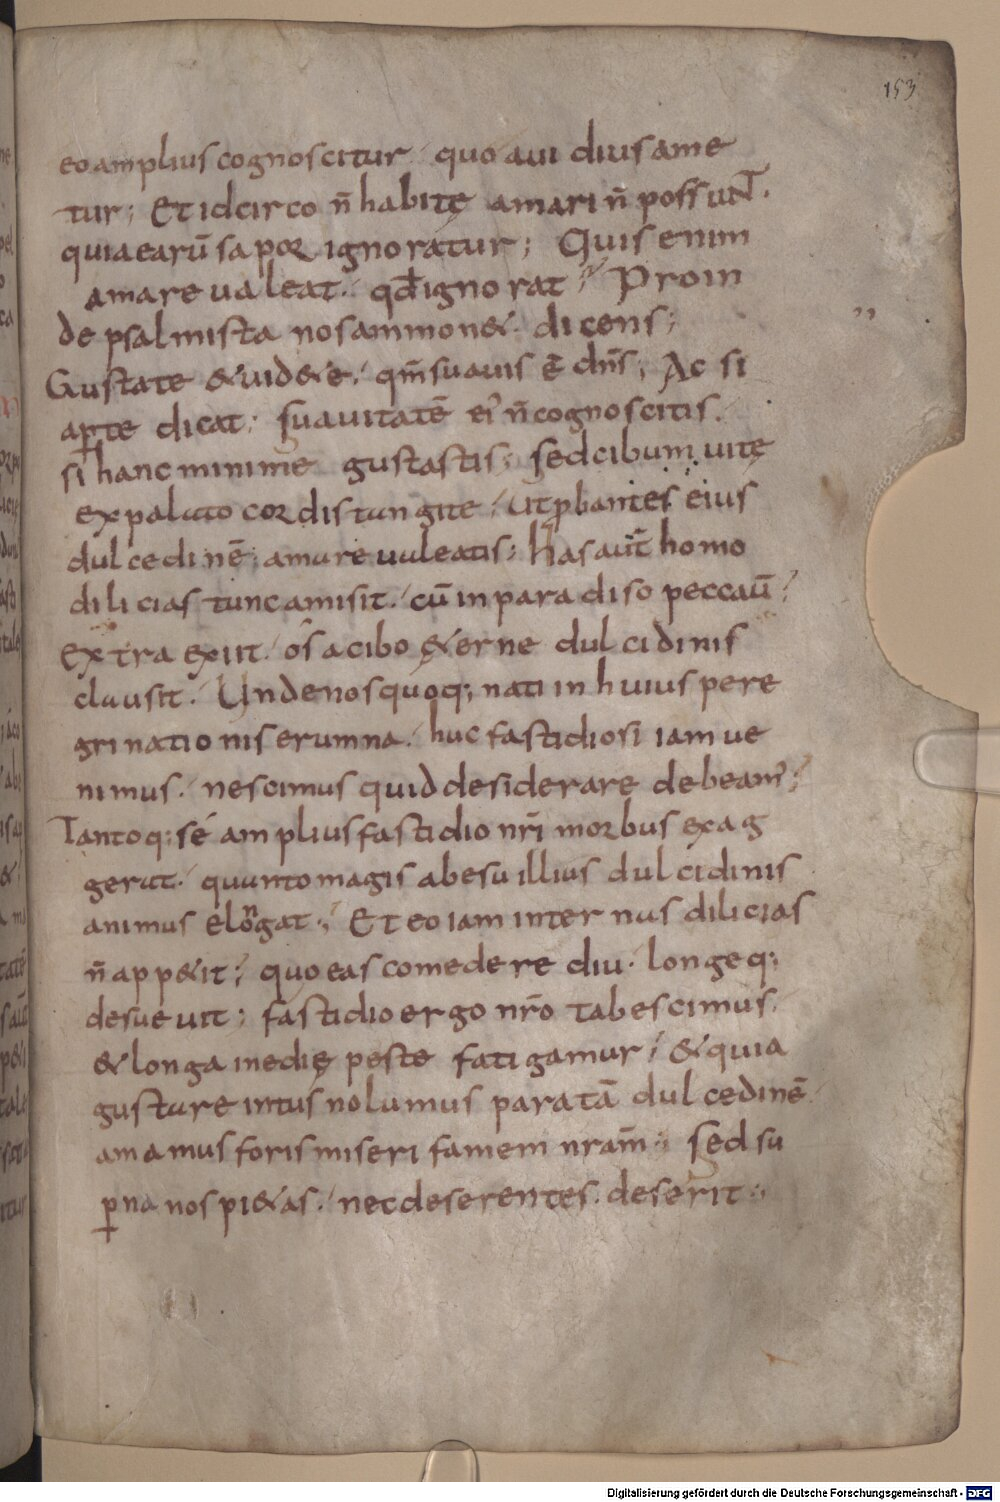 153
eo amplius cognoscitur quo aui dius ame
tur; Et idcirco n̄ habitę amari n̄ possunt.
quia earū sapor ignoratur; Quis enim
amare ualeat. qđ ignorat? Proin
de psalmista nos ammon&. dicens;
Gustate & uid&e. qm̄ suauis ē dn̄s; Ac si
aꝑte dicat; suauitatē ei' n̄ cognoscitis.
si hanc minime gustastis; sed cibum uitę
ex palato cordis tangite; ut ꝓbantes eius
dulcedinē amare ualeatis; Has aut̄ homo
dilicias tunc amisit. cū in paradiso peccau̅;
Extra exiit. os a cibo &erne dulcidinis
clausit. Unde nos quoq; nati in huius pere
grinationis erumna. huc fastidiosi iam ue
nimus. nescimus quid desiderare debeam';
Tantoq; sé amplius fastidio nr̄i morbus exag
gerat. quanto magis ab esu illius dulcidinis
animus elongat; Et eo iam internus dilicias
n̄ app&it; quo eas comedere diu. longeq;
desueuit; fastidio ergo nr̄o tabescimus.
& longa inedię peste fatigamur; & quia
gustare intus nolumus paratā dulcedinē
amamus foris miseri famem nrām; sed su
ꝑna nos pi&as. nec deserentes. deserit;
Digitalisierung gefördert durch die Deutsche Forschungsgemeinschaft - DFG